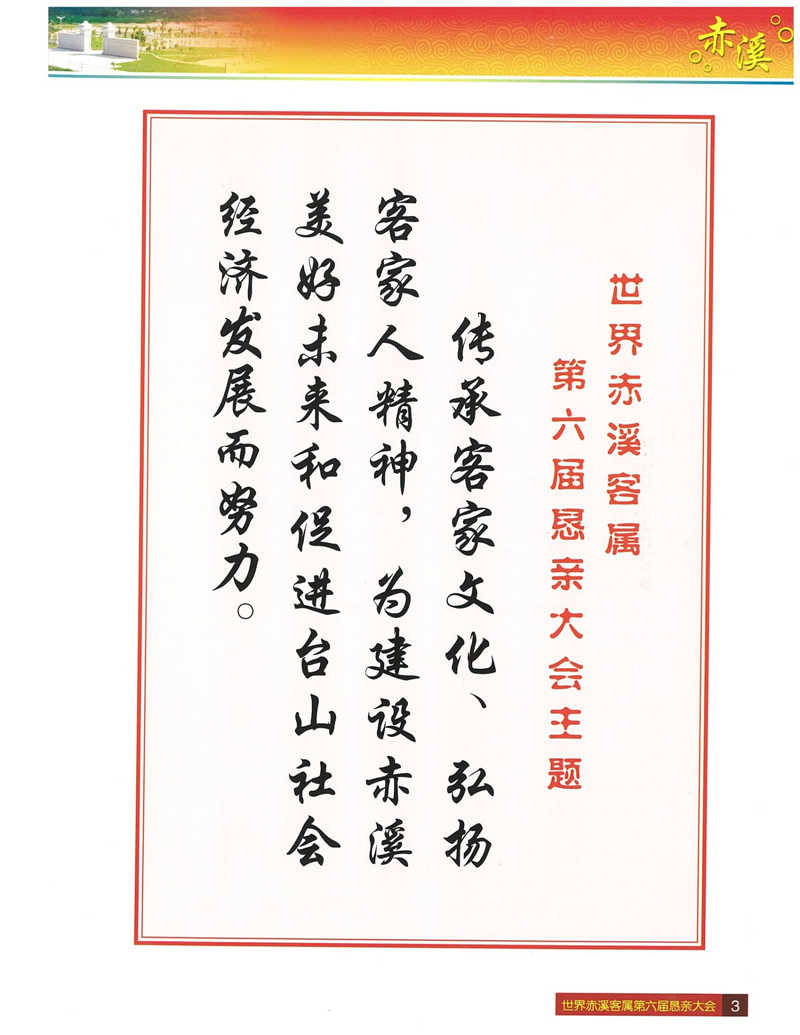 赤溪
世界赤溪客属
第六届恳亲大会主题
传承客家文化、弘扬
客家人精神，为建设赤溪
美好未来和促进台山社会
经济发展而努力。
世界赤溪客属第六届恳亲大会 3